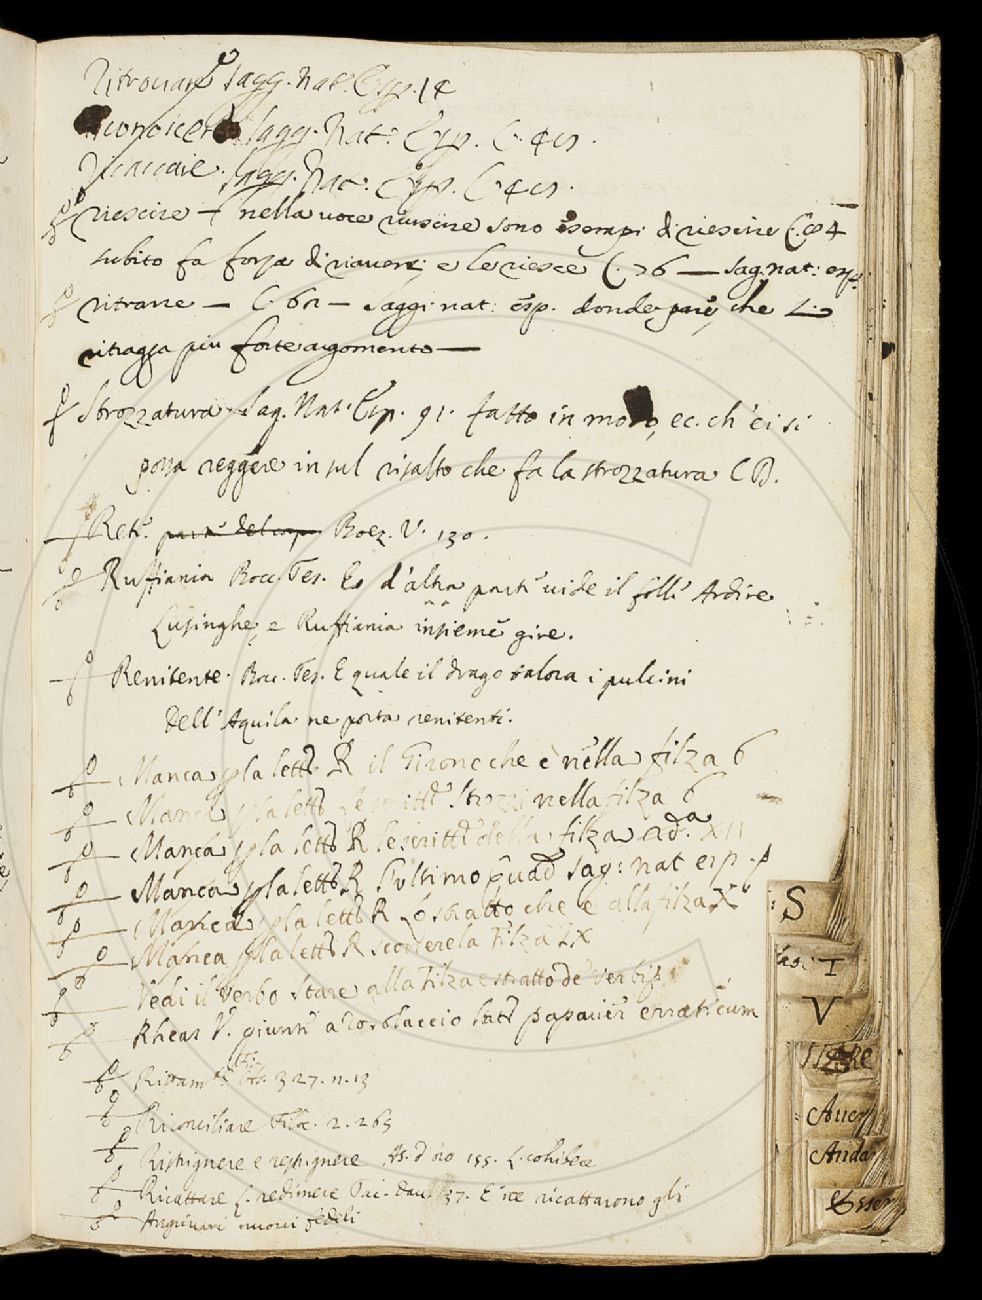 Ritrovare Sagg. Nat. Esp. 14
Riconoscere Sagg. Nat. Esp. C. 4
Sagg. Nat. Esp. C. 4
riescire – nella voce riuscire sono esempi di riescire C. 4
subito fa forza di riavere, e le riesce C. 76 — Sag. nat: esp:
ritrarre – C. – Saggi nat: esp. donde pare, che
ritragga piu forte argomento —
Strozzatura Sag. Nat. Esp. 91. fatto in modo, ec. ch'ei si
possa reggere in sul risalto che fa la strozzatura C D.
Rete. Boez. V. 130.
Ruffiania Bocc. Tes. E d'altra parte vide il folle Ardire
Lusinghe, e Ruffiania insieme gire.
Renitente. Bocc. Tes. E quale il drago talora i pulcini
Dell'Aquila ne porta renitenti.
Manca p la lettª R il Girone che è nella filza 6
Manca p la lettª le scritte Strozzi nella filza 6
Manca p la lettª R le scritte della filza ad. XII
Manca p la lettª R l'ultimo quad Sag: nat esp.
Manca p la lettª R Lo stratto che è alla filza X
Manca p la lettª R scorrere la Filza IX
Vedi il verbo Stare alla Filza estratto de verbi
Rheas V. giunte a Rosolaccio late papaver erraticum
327. n. 13
Riconciliare Filoc. 2. 265
Rispignere e respignere d'oro 155. L. cohibere
Ricattare L. redimere Dav. 37. E se ricattarono gli
Angrivari nuovi fedeli
S
T
V
STARE
Aver
Anda
Esser